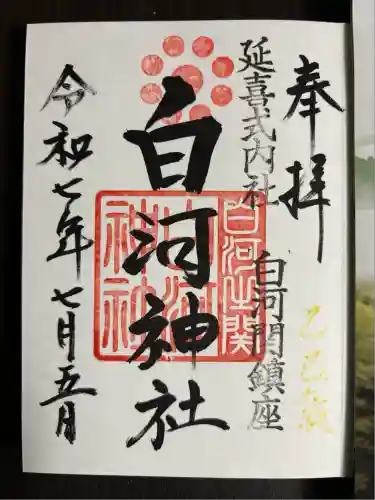 奉拝
乙巳歳
延喜式内社
白河関鎮座
白河神社
白河
神社
令和七年七月五日